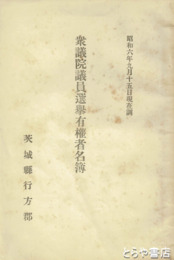 昭和六年九月十五日現在調
衆議院議員選擧有權者名簿
茨城縣行方郡
とらや書店